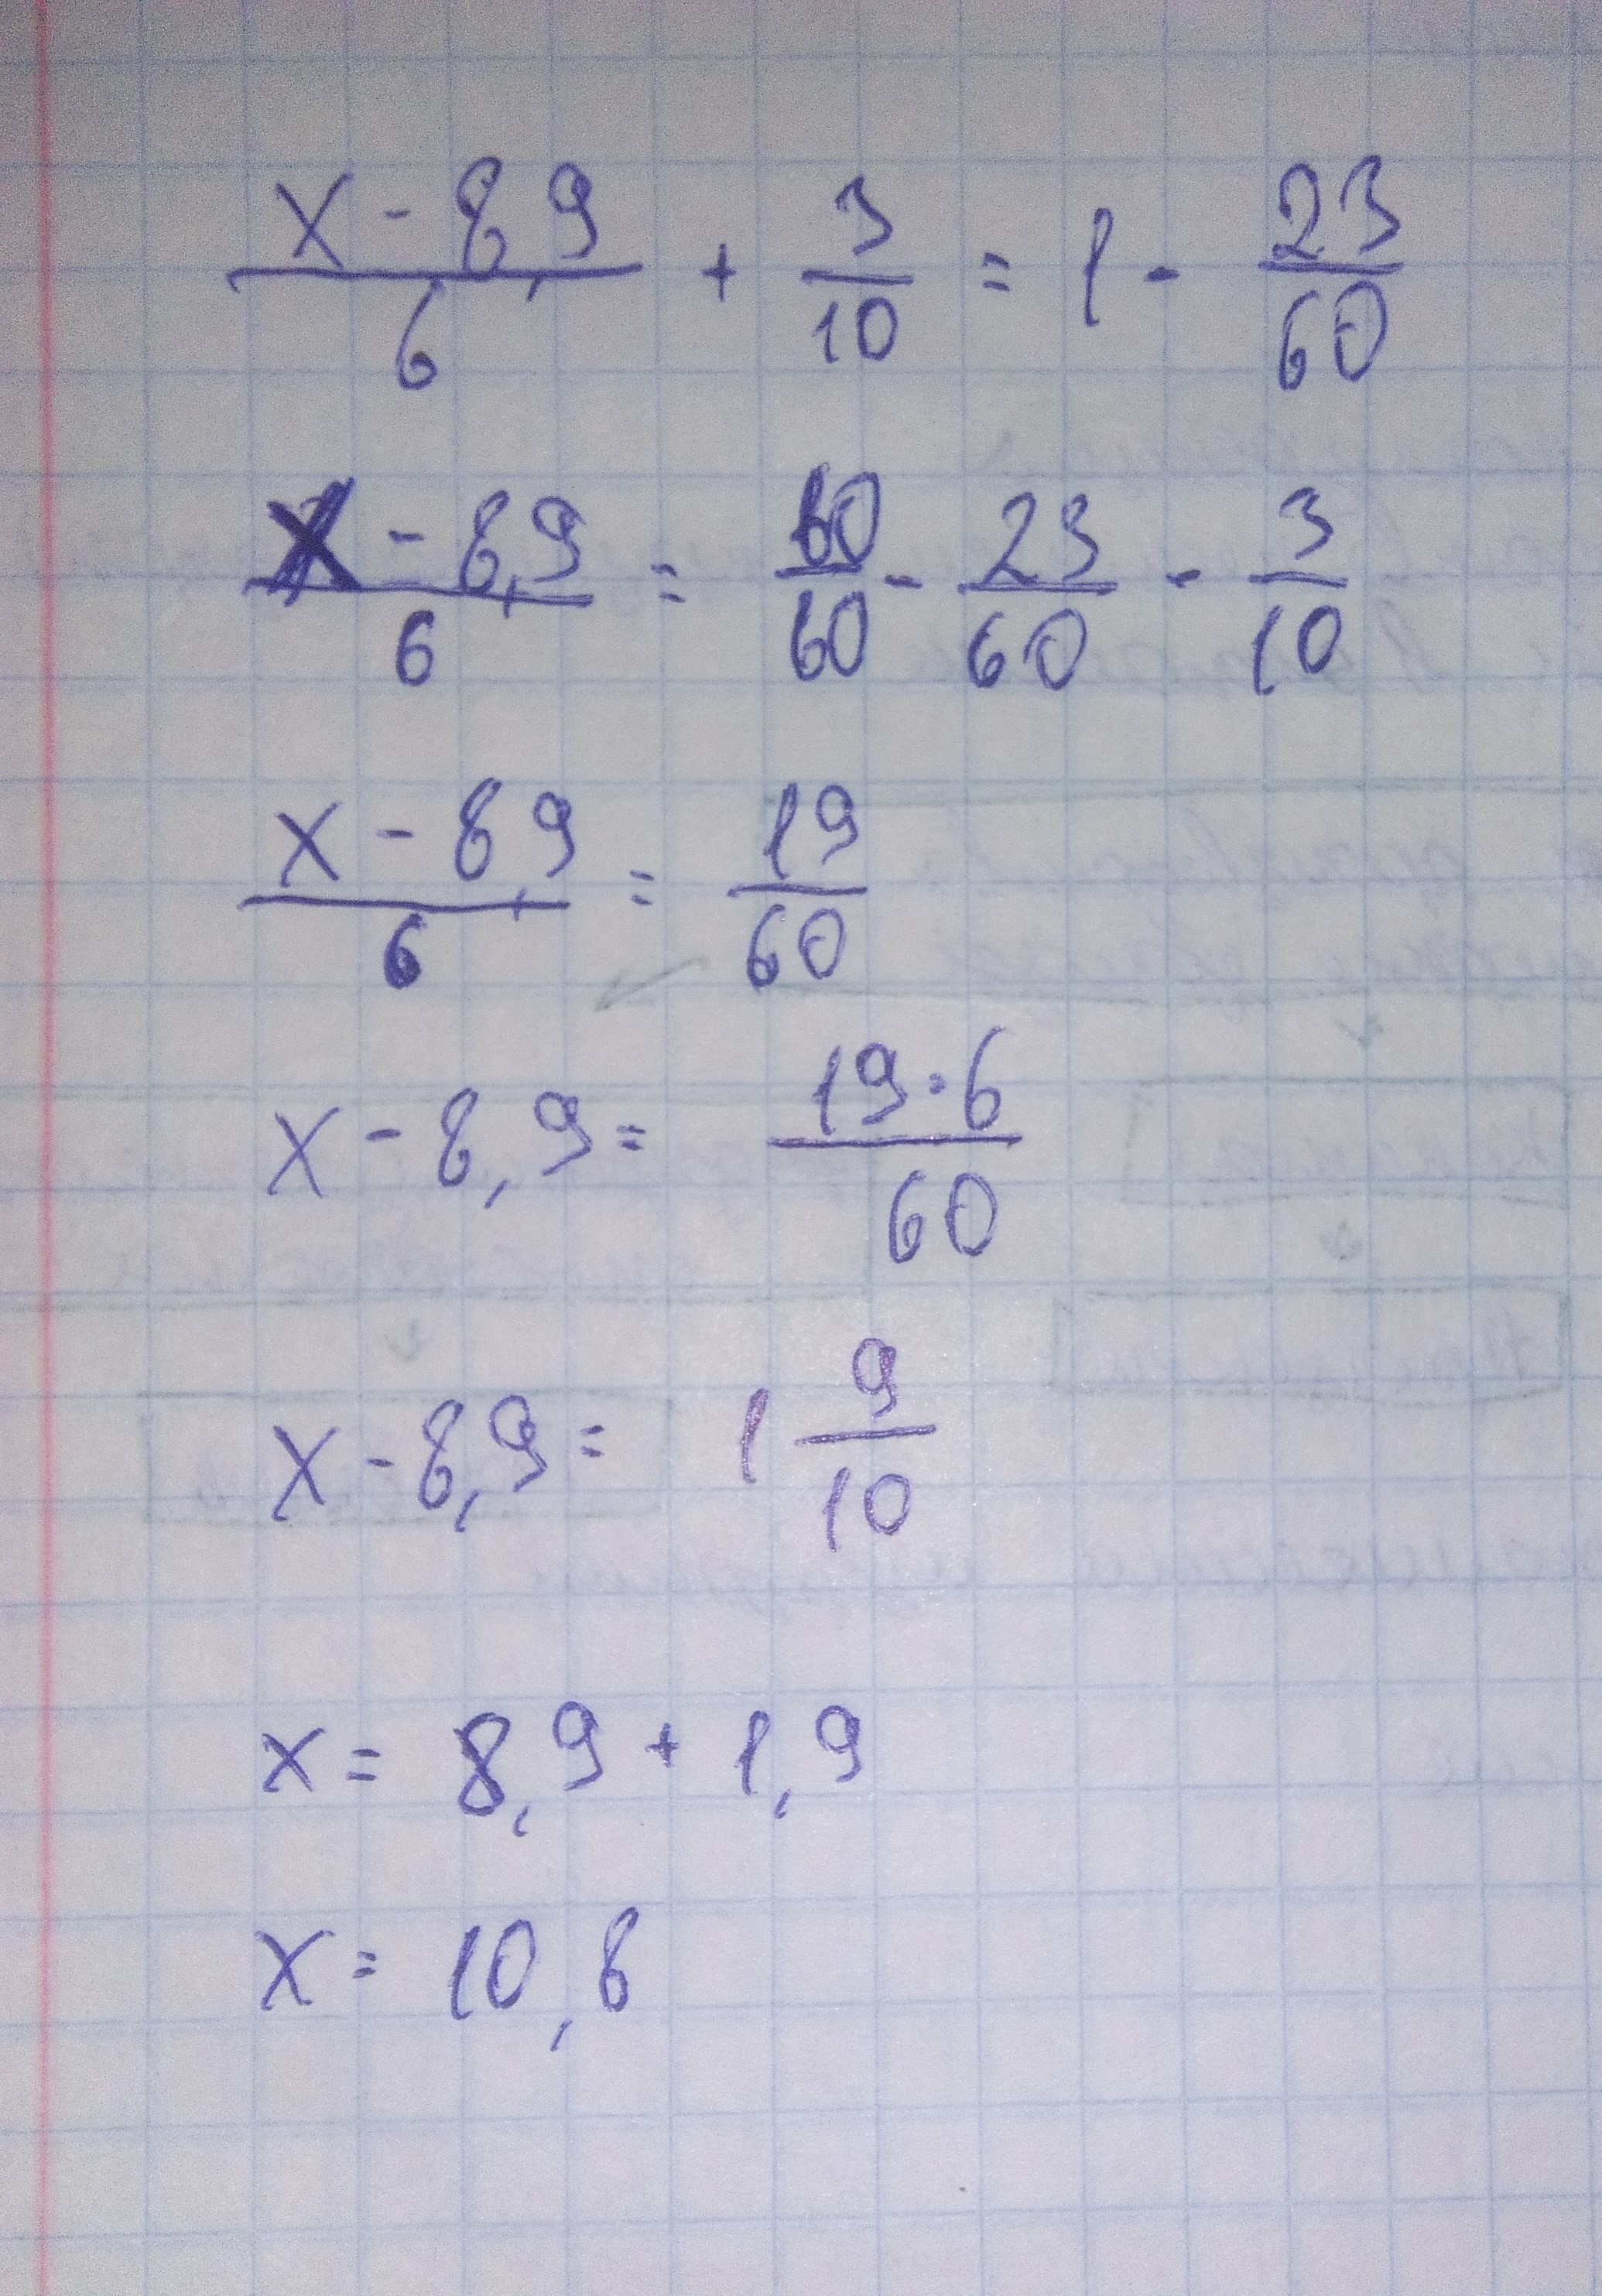 (x - 8,9)/6 + 3/10 = 1 - 23/60
(x - 8,9)/6 = 60/60 - 23/60 - 3/10
(x - 8,9)/6 = 19/60
x - 8,9 = (19·6)/60
x - 8,9 = 1 9/10
x = 8,9 + 1,9
x = 10,8